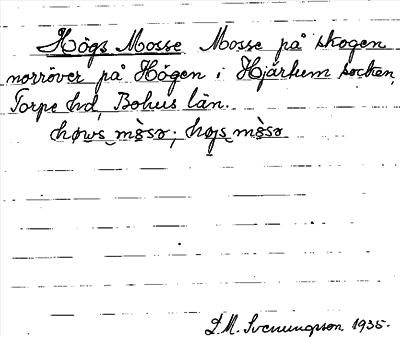 Högs Mosse Mosse på skogen
norröver på Högen i Hjärtum socken,
Torpe hd, Bohus län.
L.M. Svenungsson 1935.